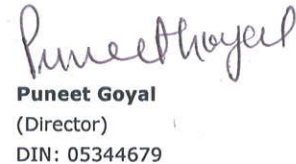 Puneet Goyal
Puneet Goyal
(Director)
DIN: 05344679